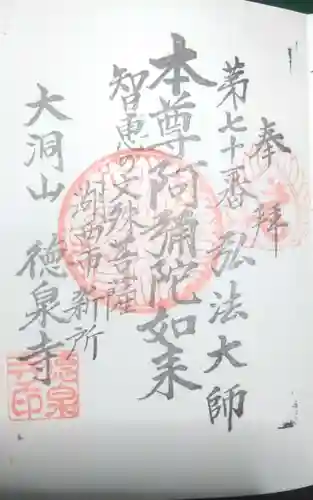 奉拜
第七十番 弘法大師
本尊 阿彌陀如来
智恵の文殊菩薩
湖西市新所
大洞山 徳泉寺